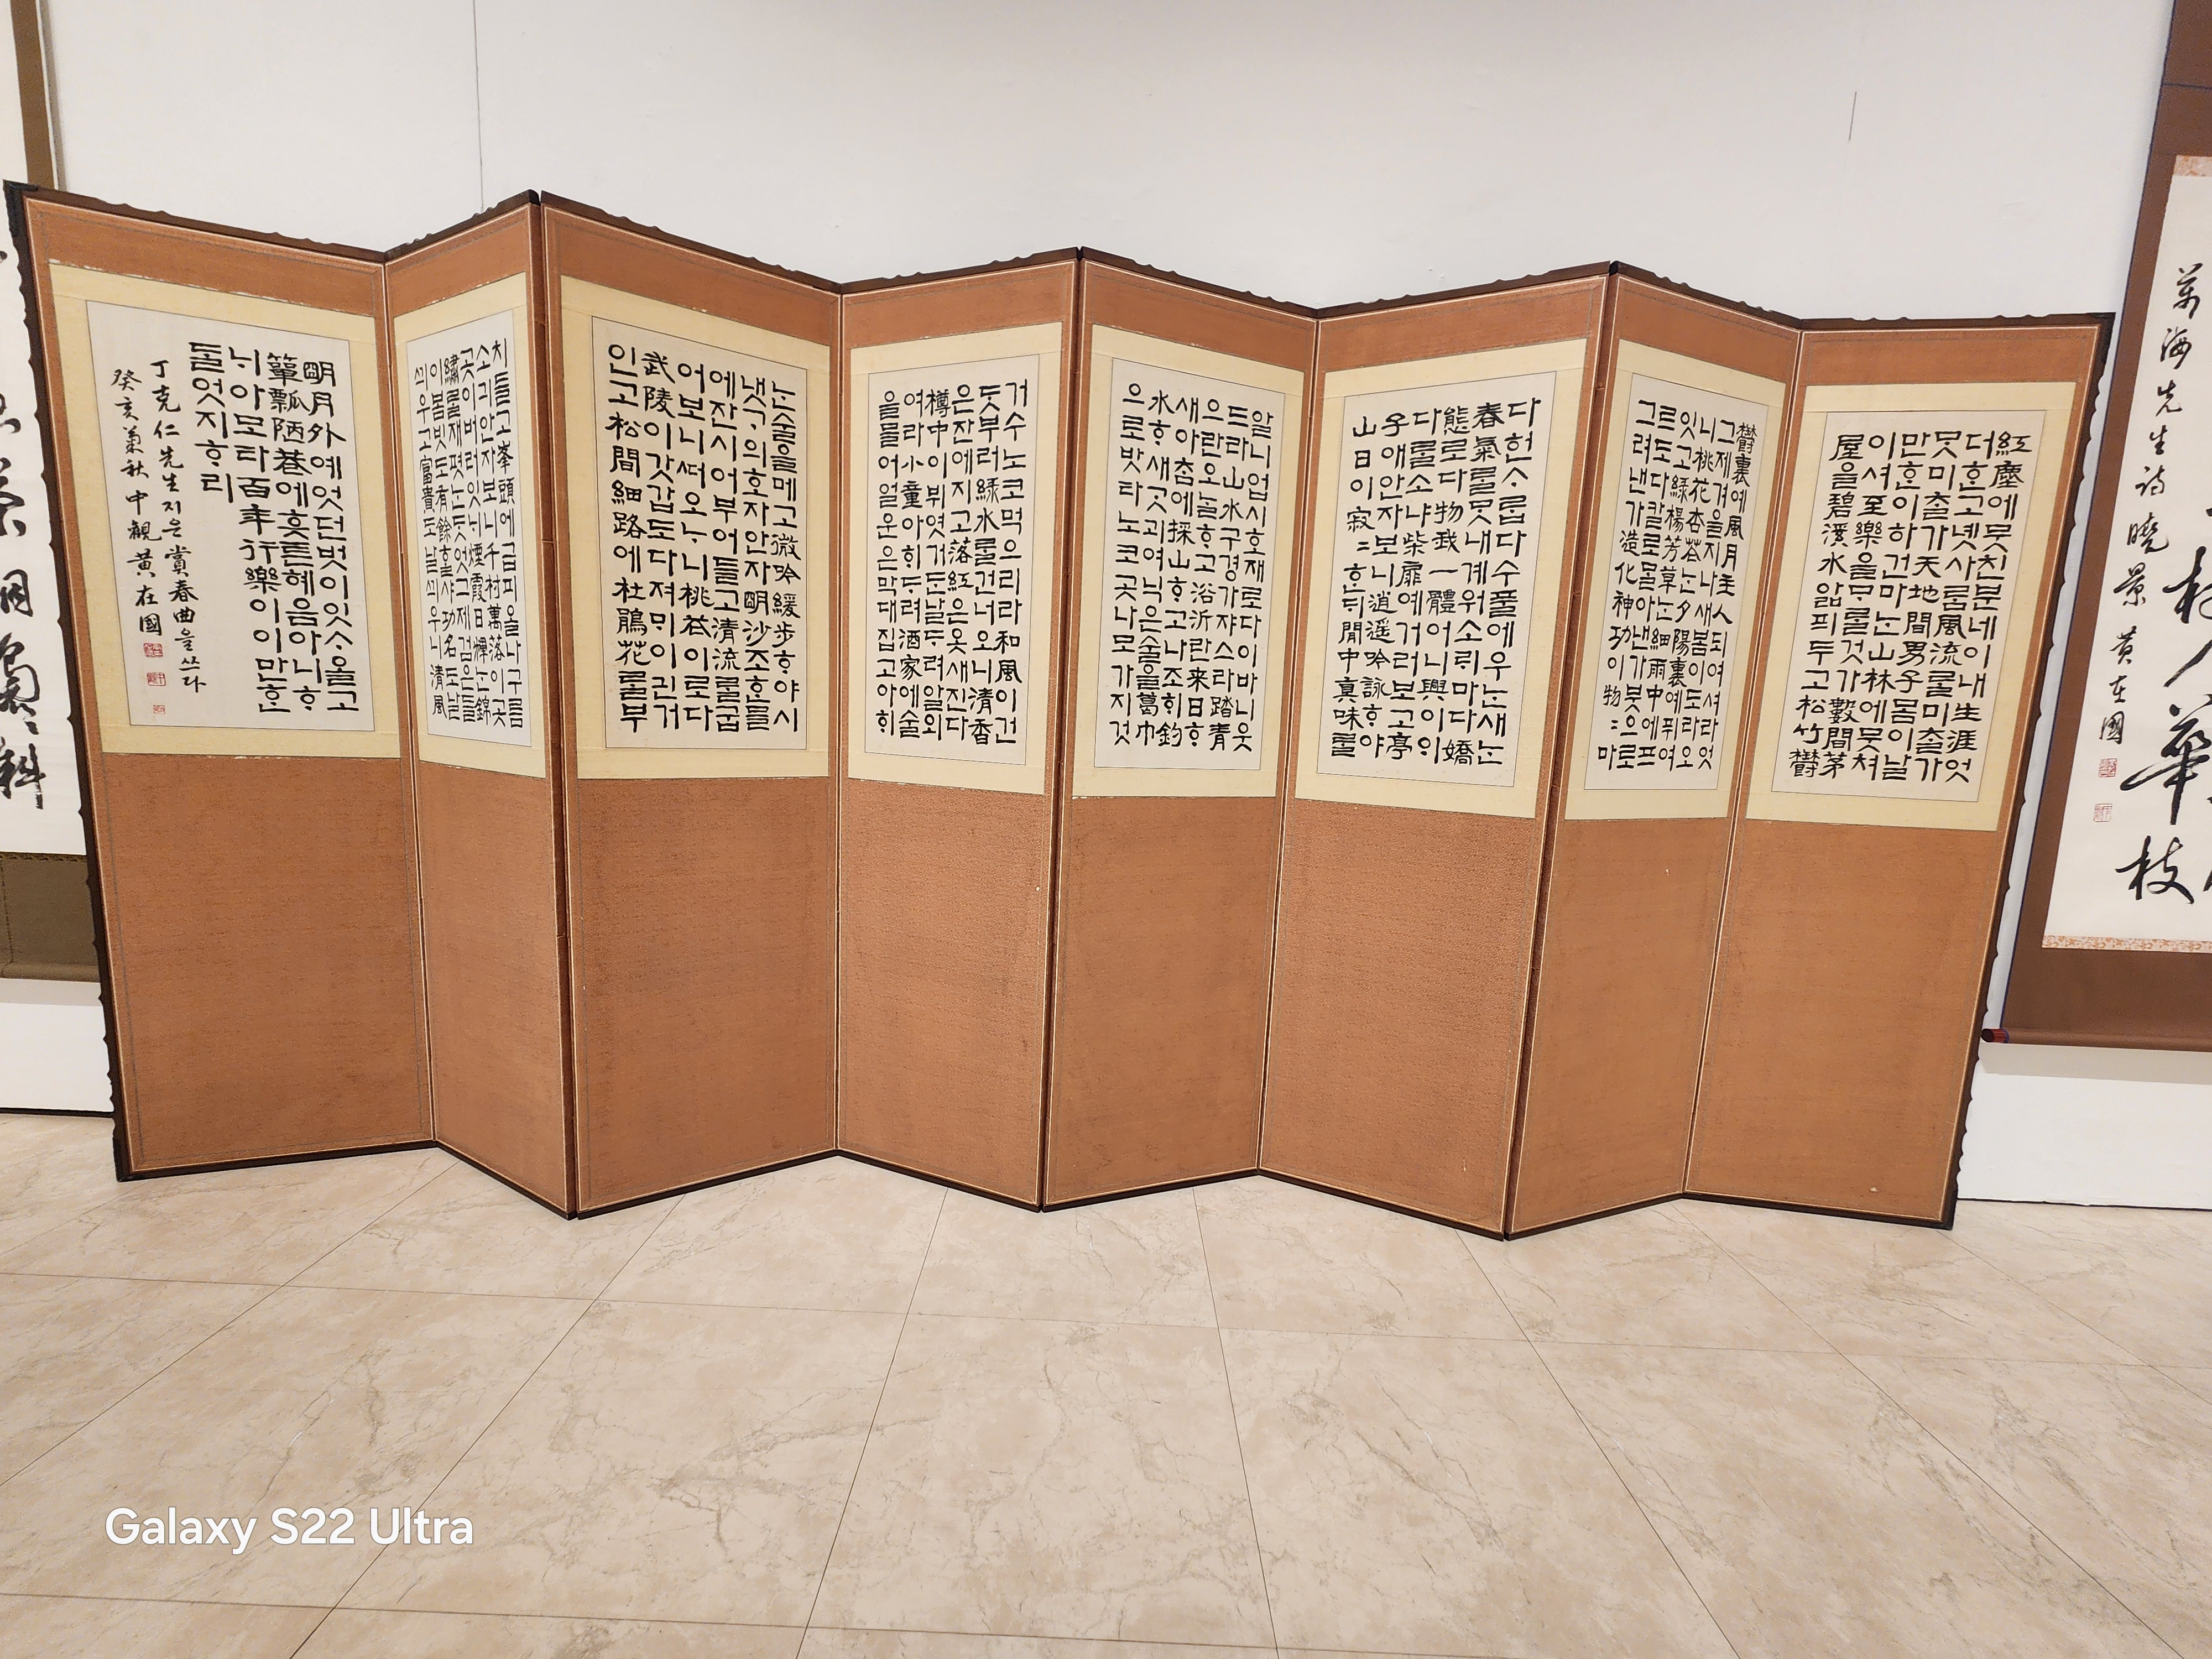 紅塵에뭇친분네이내生涯엇
더ᄒᆞ고녯사ᄅᆞᆷ風流ᄅᆞᆯ미ᄎᆞᆯ가
못미ᄎᆞᆯ가天地間男子몸이날
만ᄒᆞᆫ이하건마ᄂᆞᆫ山林에뭇쳐
이셔至樂을ᄆᆞᄅᆞᆯ것가數間茅
屋을碧溪水앏픠두고松竹鬱
鬱裏예風月主人되여셔라엇
그제겨을지나새봄이도라오
니桃花杏花ᄂᆞᆫ夕陽裏예퓌여
잇고綠楊芳草ᄂᆞᆫ細雨中에프
르도다칼로ᄆᆞᆯ아낸가붓으로
그려낸가造化神功이物〻마
다헌ᄉᆞ롭다수풀에우ᄂᆞᆫ새ᄂᆞᆫ
春氣ᄅᆞᆯ뭇내계워소ᄅᆡ마다嬌
態로다物我一體어니興이ᄋᆡ
다ᄅᆞᆯ소냐柴扉예거러보고亭
子애안자보니逍遙吟詠ᄒᆞ야
山日이寂〻ᄒᆞᆫᄃᆡ閒中眞味ᄅᆞᆯ
알니업시호재로다이바니웃
드라山水구경가쟈스라踏靑
으란오ᄂᆞᆯᄒᆞ고浴沂란来日ᄒᆞ
새아ᄎᆞᆷ에採山ᄒᆞ고나조ᄒᆡ釣
水ᄒᆞ새ᄀᆞᆺ괴여닉은술을葛巾
으로밧타노코곳나모가지것
거수노코먹으리라和風이건
ᄃᆞᆺ부러綠水ᄅᆞᆯ건너오니淸香
은잔에지고落紅은옷새진다
樽中이뷔엿거ᄃᆞᆫ날ᄃᆞ려알외
여라小童아ᄒᆡᄃᆞ려酒家에술
을믈어얼운은막대집고아ᄒᆡ
ᄂᆞᆫ술을메고微吟緩步ᄒᆞ야시
냇ᄀᆞ의호자안자明沙조ᄒᆞᆫ믈
에잔시어부어들고淸流ᄅᆞᆯ굽
어보니ᄯᅥ오ᄂᆞ니桃花이로다
武陵이갓갑도다져ᄆᆡ이긘거
인고松間細路에杜鵑花ᄅᆞᆯ부
치들고峯頭에급피올나구름
소긔안자보니千村萬落이곳
곳이버러잇ᄂᆡ煙霞日輝ᄂᆞᆫ錦
繡ᄅᆞᆯ재폇ᄂᆞᆫᄃᆞᆺ엇그제검은들
이봄빗도有餘ᄒᆞᆯ샤功名도날
ᄭᅴ우고富貴도날ᄭᅴ우니淸風
明月外예엇던벗이잇ᄉᆞ올고
簞瓢陋巷에훗튼혜음아니ᄒᆞ
ᄂᆡ아모타百年行樂이이만ᄒᆞᆫ
ᄃᆞᆯ엇지ᄒᆞ리
丁克仁先生지은賞春曲을쓰다
癸亥菊秋中觀黃在國
萬海先生詩曉景 黃在國
華枝
Galaxy S22 Ultra